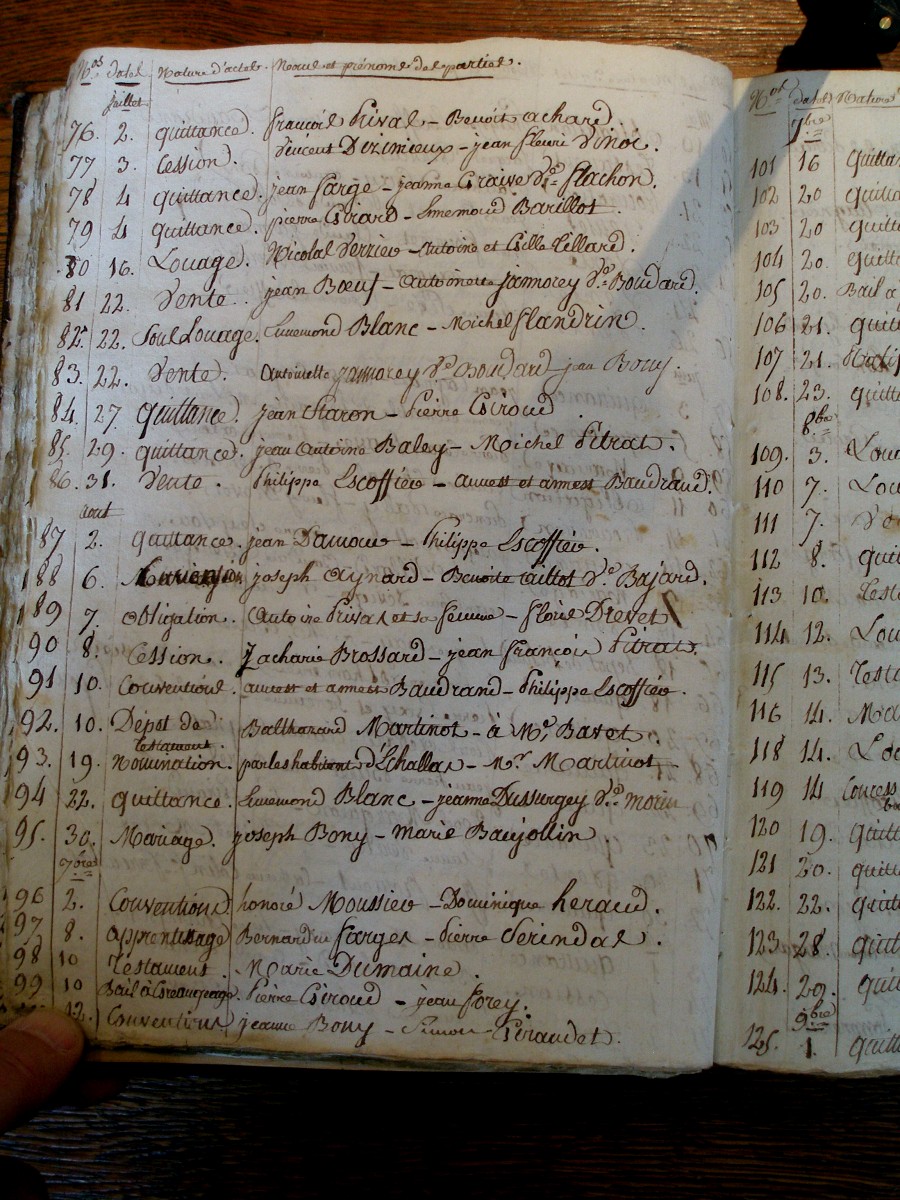 Nos dates Nature d'actes. Noms et prénoms des parties.
juillet
76. 2. quittance. françois Rival - Benoit achard.
77 3. Cession. Vincent Dizimieux - jean fleuri Vinoi.
78 4 quittance. jean farge - jeanne Graive Ve. flachon.
79 4 quittance. pierre Girard - Ennemond Barillot.
80 16. Louage. Nicolas Verrier - Antoine et Gille Tellard.
81 22. Vente. jean Bœuf - antoinette jammorey Ve. Boudard.
82. 22. Sous Louage. Ennemond Blanc - Michel flandrin.
83. 22. Vente. antoinette jammorey Ve. Boudard jean
84. 27. quittance. jean Staron - Pierre Giroud.
85. 29. quittance. jean antoine Baley - Michel Pitrat.
86. 31. Vente. Philippe Escoffier - Baudrand.
aout
87 2. quittance. jean Damour - Philippe Escoffier.
88 6. joseph Aynard - Benoite aillot Ve. Bajard.
89 7. obligation. Antoine Rivas et sa femme - Drevet
90 8. Cession. Zacharie Brossard - jean françois Pitrat.
91 10. Conventions. Baudrand - Philippe Escoffier.
92. 10. Dépot de testament. Balthazard Martinot - à Me. Bavet.
93. 19. Nomination. par les habitants d'Echallas - Mr. Martinot
94 22. quittance. Ennemond Blanc - jeanne Dussurgey Ve. morin
95. 30. Mariage. joseph Bony - marie Baujollin
7bres
96 2. Conventions honoré Moussier - Dominique heraud.
97. 8. apprentissage Bernardin farges - Pierre Serindat.
98 10 Testament. Marie Dumaine.
99 10 Bail à Pierre Giroud - jean forey.
12. Conventions jeanne Bony - Simon Giraudet.
Nos dates Nature
7bre
101 16 quittan
102 20 quitta
103 20 quitt
104 20. quitt
105 20. Bail a
106 21. quit
107 21.
108. 23. quit
8bre
109. 3. Loua
110 7. Lou
111 7. Ve
112 8. quit
113 10. Test
114 12. Lou
115 13. Testa
116 14. Ma
118 14. Lo
119 14 Concess
120 19. quitt
121 20. quitt
122. 22. quit
123 28 quitt
124. 29. quit
9bre
125. 1. quitt